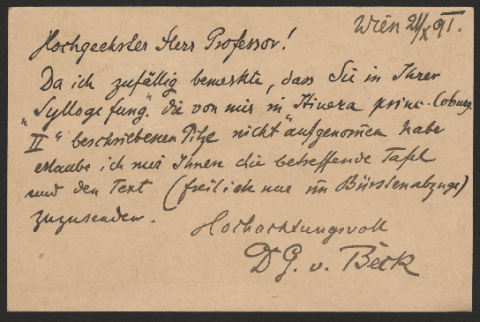 Wien 21/X 91.
Hochgeehrter Herr Professor!
Da ich zufällig bemerkte, dass Sie in Ihrer
„Sylloge fung." die von mir in Itinera princ. Coburg
II" beschriebenen Pilze nicht aufgenom̅en habe
erlaube ich mir Ihnen die betreffende Tafel
und den Text (freilich nur im Bürstenabzuge)
zuzusenden.
Hochachtungsvoll
Dr G. v. Beck